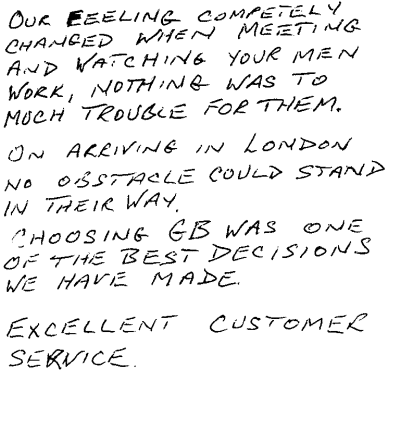 OUR FEELING COMPETELY
CHANGED WHEN MEETING
AND WATCHING YOUR MEN
WORK, NOTHING WAS TO
MUCH TROUBLE FOR THEM.
ON ARRIVING IN LONDON
NO OBSTACLE COULD STAND
IN THEIR WAY.
CHOOSING GB WAS ONE
OF THE BEST DECISIONS
WE HAVE MADE.
EXCELLENT CUSTOMER
SERVICE.